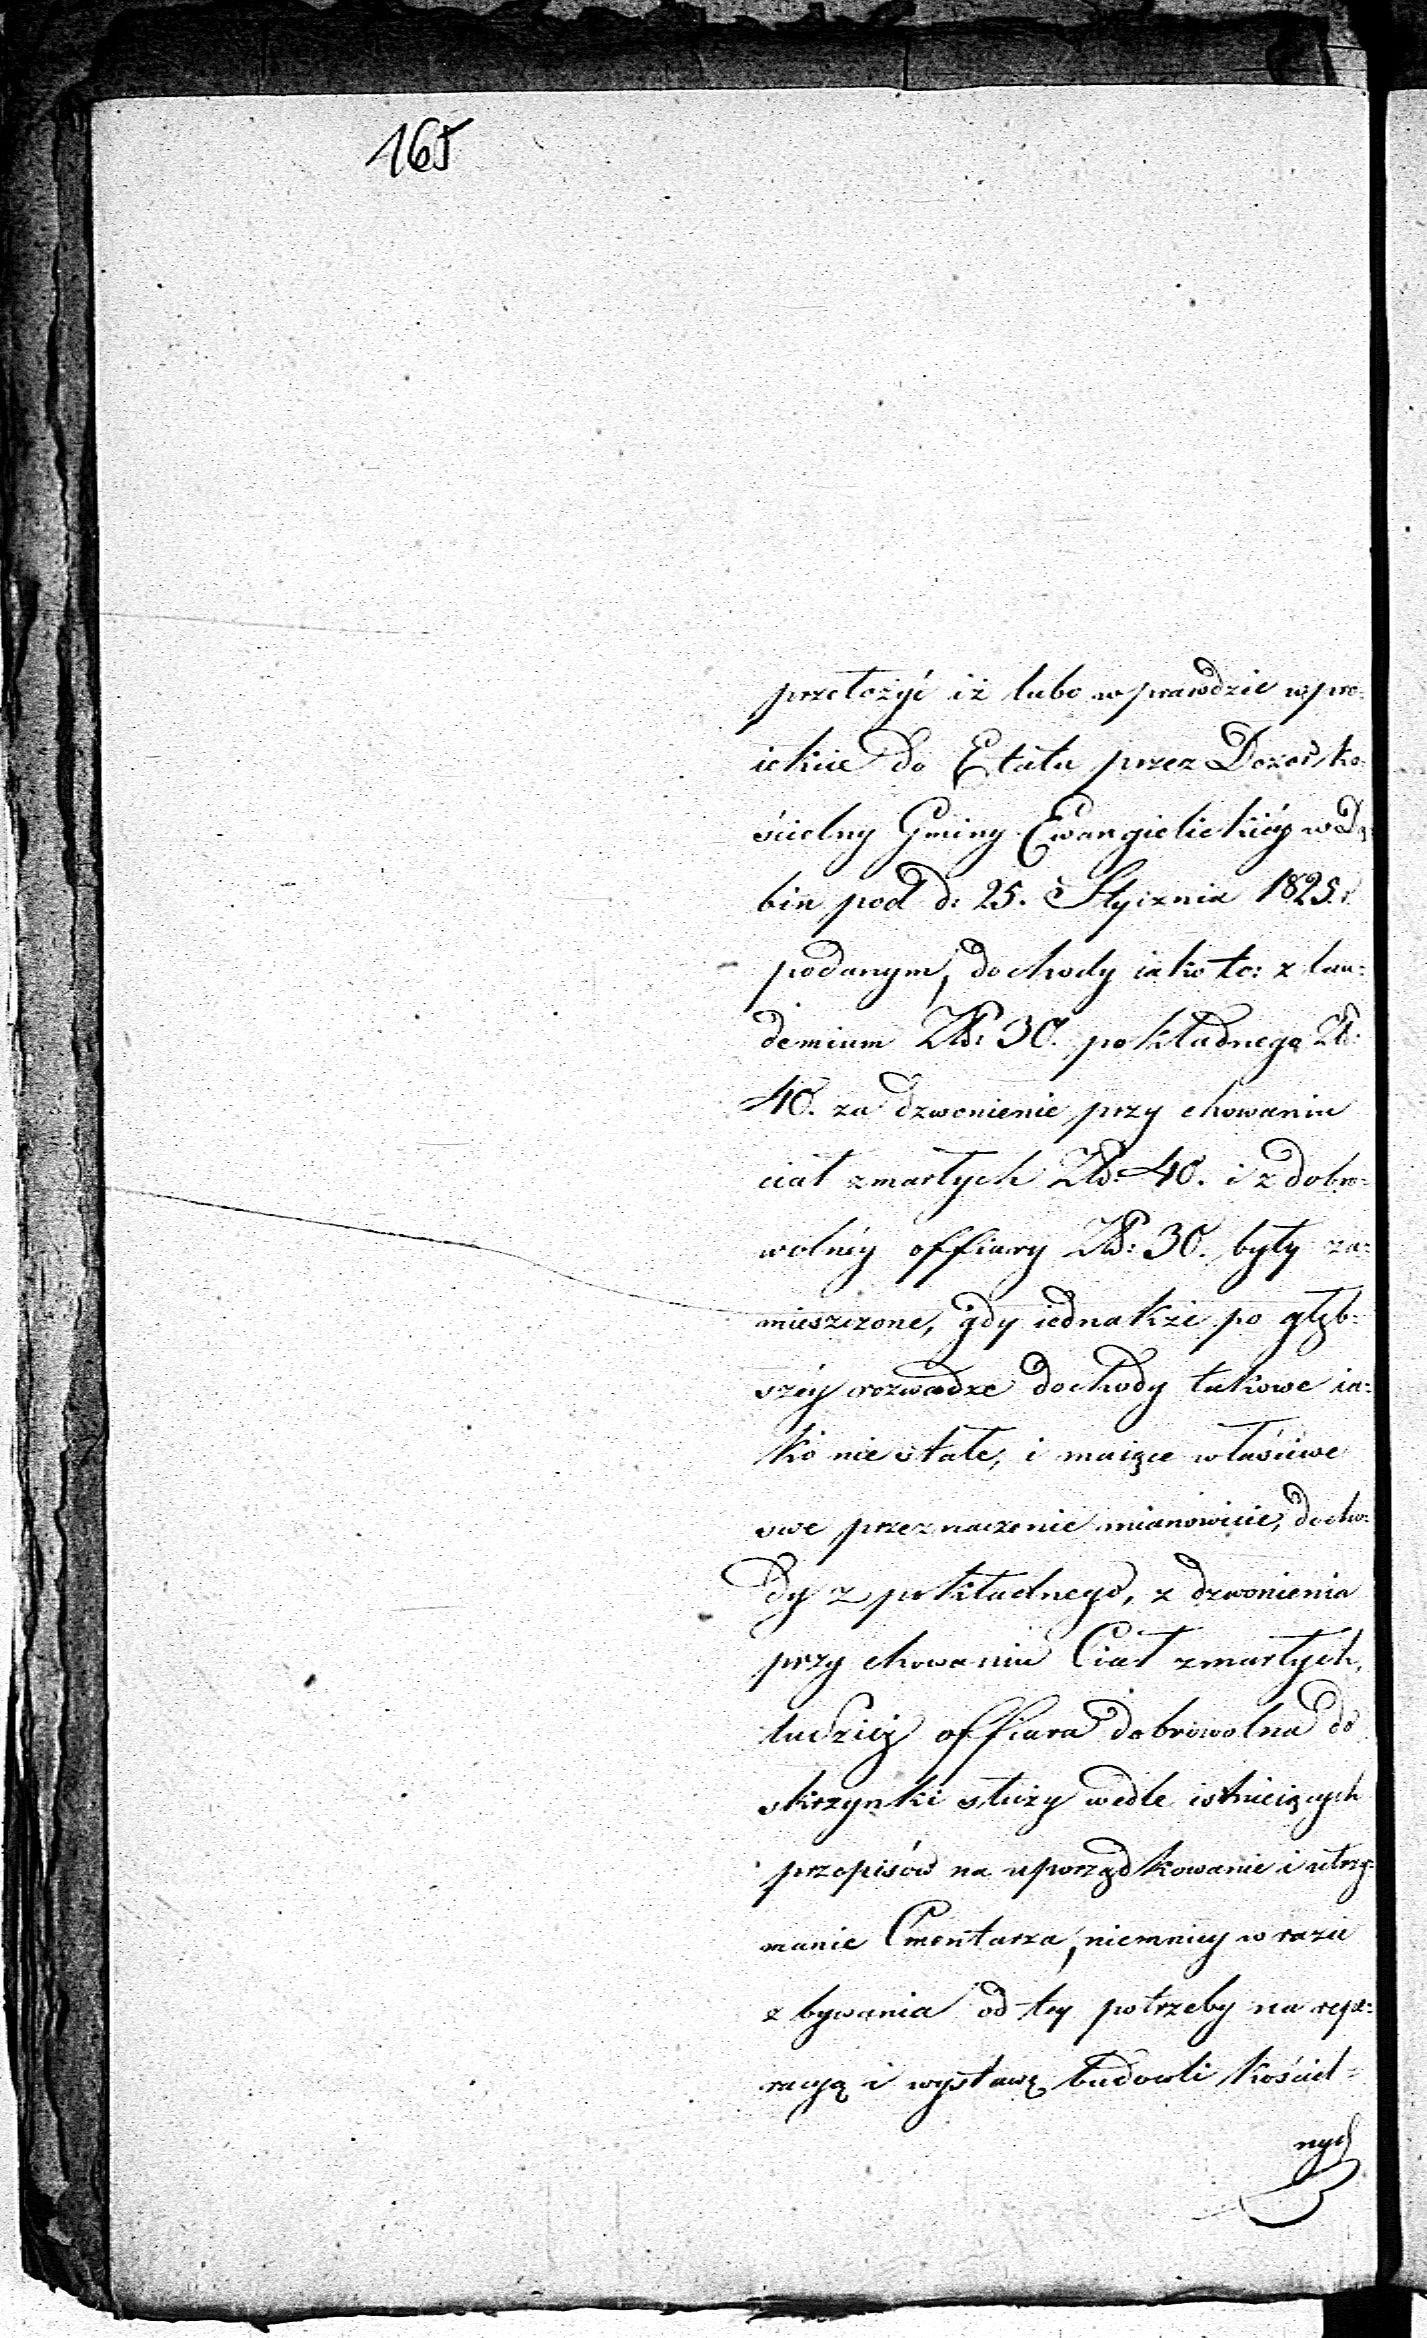 165
przełożyć iż lubo wprawdzie w pro:
iekcie do Etatu przez Dozór ko:
ścielny Gminy Ewangielickiéy w Dą
bin pod d: 25. Stycznia 1825. r.
podanym, dochody iako to: z lau:
demium Złp: 30. pokładnego Złp:
40. za dzwonienie przy chowaniu
ciał zmarłych Złp: 40. i z dobro:
wolnéy offiary Złp: 30. były za:
mieszczone, gdy iednakże po głęb:
széy rozwadze dochody takowe ia:
ko nie stałe, i maiące właściwe
swe przeznaczenie mianowicie, docho:
dy z pokładnego, z dzwonienia
przy chowaniu Ciał zmarłych,
tudzież offiara dobrowolna do
skrzynki służy wedle istnieiących
przepisów na uporządkowanie i utrzy:
manie Cmentarza, niemniey w razie
zbywania od tey potrzeby na repa:
racyą i wystawę budowli kościel:
nych